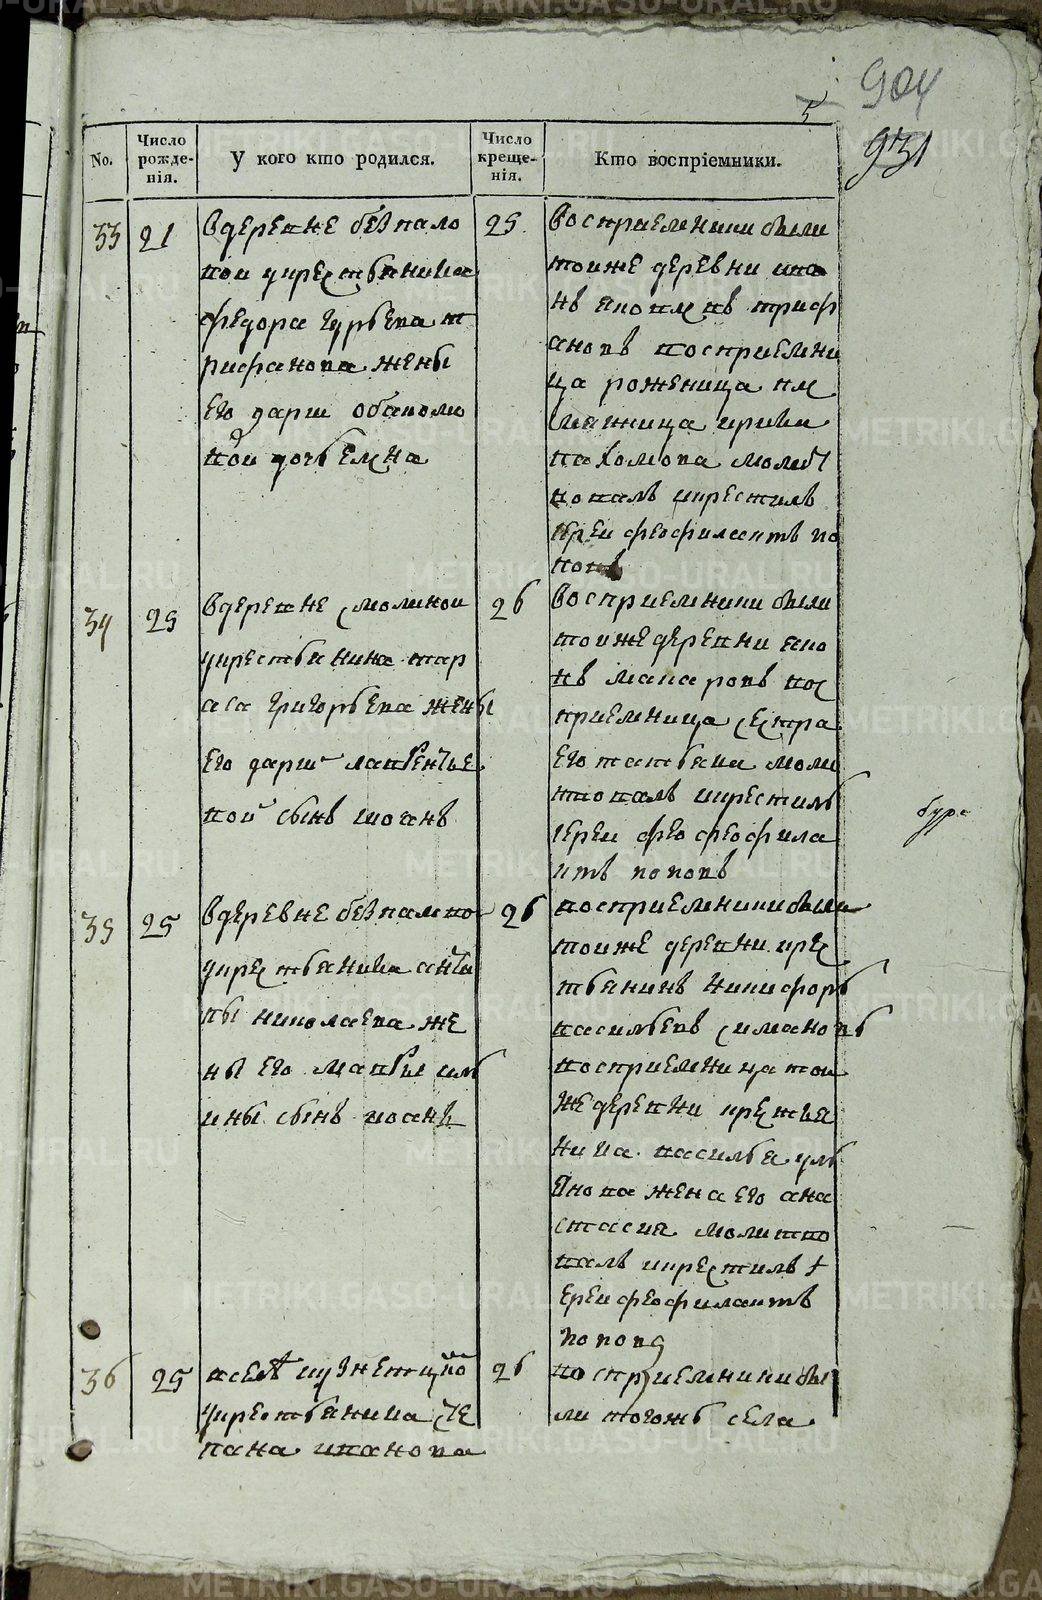 904
5
931
No.
Число рожде-нія.
У кого кто родился.
Число креще-нія.
Кто воспріемники.
33
21
Вдеревне безпало
вои укрестьянина
федора гурьева т
рифанова жены
его дарьи
вои дочь елена
25
Восприемники были
тоиже деревни ива
нъ яковлевъ триф
ановъ восприемни
ца роженица пле
мянница
пахомова молит
вовалъ икрестилъ
Иереи феофилактъ по
повъ
34
25
Вдеревне смолинои
укрестьянина тар
аса григорьева жены
его дарьи лаврентье
вои сынъ иоанъ
26
Восприемники были
тоиже деревни яко
въ макаровъ вос
приемница сестра
его татьяна моли
твовалъ икрестилъ
іереи фео феофила
ктъ поповъ
35
25
Вдеревне безпалово
укрестьянина анти
пы николаева же
ны его мавры иль
ины сынъ иоанъ
26
восприемники были
тоиже деревни крес
тьянинъ никифоръ
васильевъ симановъ
восприемница тои
же деревни крестья
нина василья уль
янова жена его ана
стасия молитво
валъ икрестилъ і
ереи феофилактъ
попов
36
25
вселѣ кузнецкого
укрестьянина сте
пана иванова
26
восприемники бы
ли тогожъ села